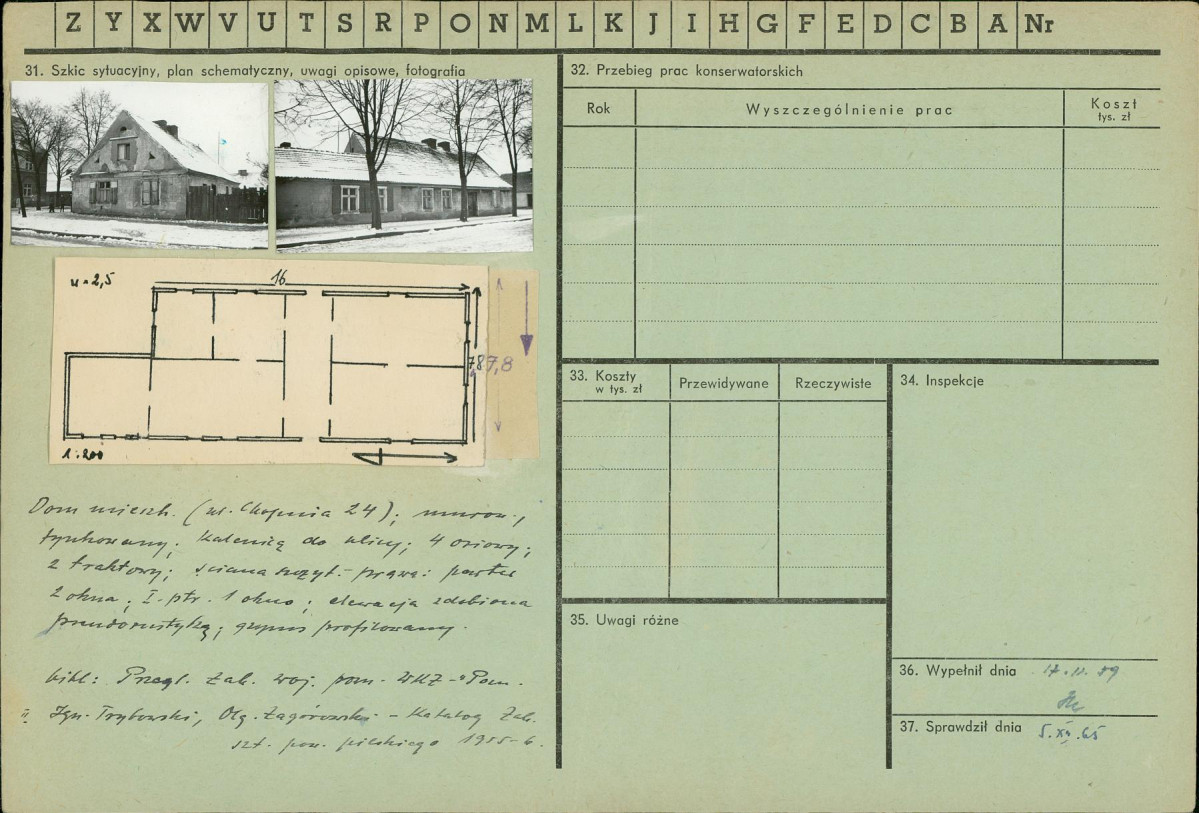 Z Y X W V U T S R P O N M L K J I H G F E D C B A Nr
31. Szkic sytuacyjny, plan schematyczny, uwagi opisowe, fotografia
16
7,8
7,8
1:200
Dom mieszk. (ul. Chopina 24); murow.,
tynkowany; kalenicą do ulicy; 4 osiowy;
2 traktowy; ściana szczyt. - prawa: parter
2 okna; I. ptr. 1 okno; elewacja zdobiona
pseudorustyką; gzyms profilowany.
bibl: Przegl. Zab. woj. pozn. WKZ - Pozn.
Ign. Trybowski, Olg. Zagórowski - Katalog Zab.
szt. pow. pilskiego 1955-6.
32. Przebieg prac konserwatorskich
Rok
Wyszczególnienie prac
Koszt
tys. zł
33. Koszty
w tys. zł
Przewidywane
Rzeczywiste
34. Inspekcje
35. Uwagi różne
36. Wypełnił dnia
37. Sprawdził dnia 5.XI.65